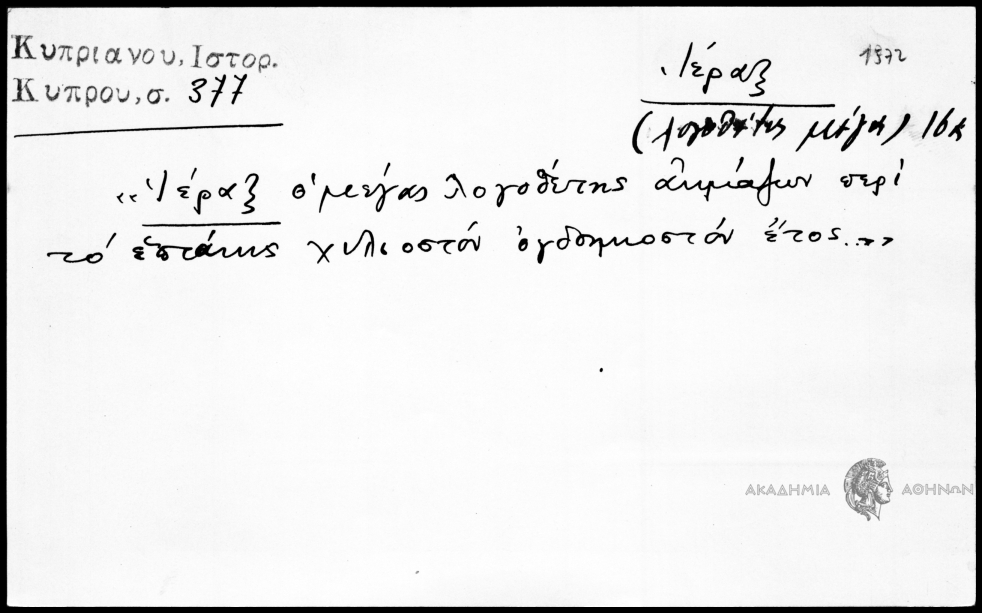 Κυπριανου, Ιστορ.
Κυπρου, σ. 377
Ἱέραξ
1572
(λογοθέτης μέγας) 16κ
"Ἱέραξ ὁ μέγας λογοθέτης ἀκμάζων περί
τό ἑπτάκις χιλιοστόν ὀγδοηκοστόν ἔτος..."
ΑΚΑΔΗΜΙΑ ΑΘΗΝΩΝ